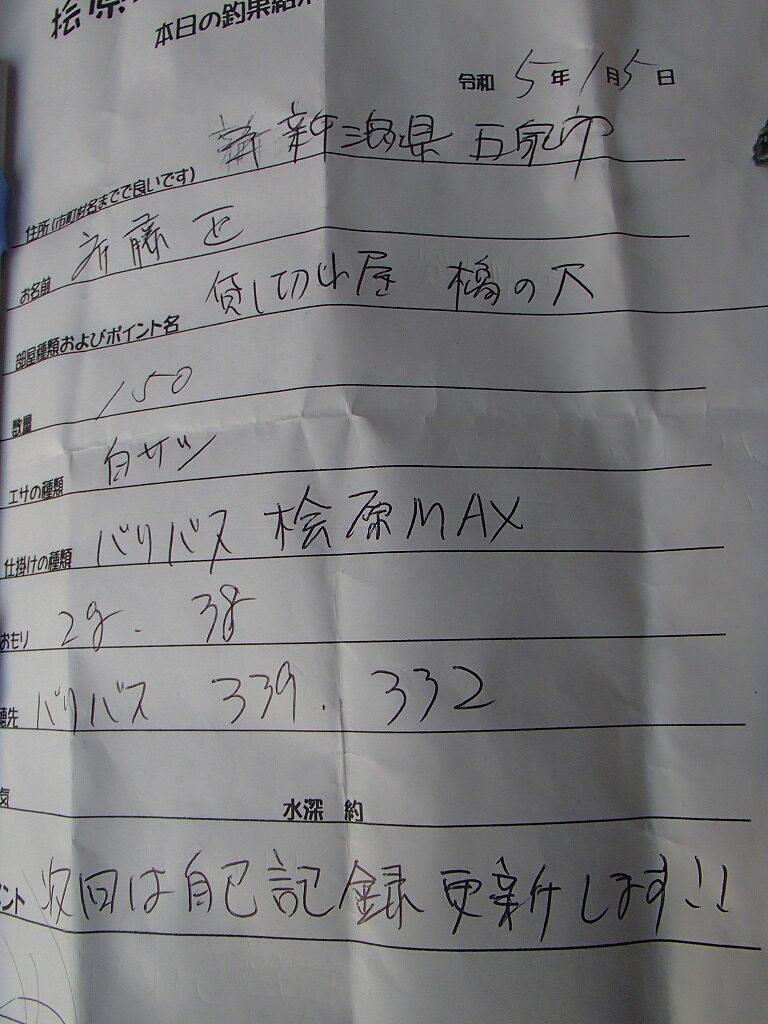 桧原
本日の釣果結果
令和 5年 1月5日
住所(市町村名までで良いです) 新潟県 五泉市
お名前 斉藤 正
部屋種類およびポイント名 貸し切り小屋 橋の下
数量 150
エサの種類 白サシ
仕掛けの種類 バリバス 桧原MAX
おもり 2g. 3g
穂先 バリバス 339. 332
水深 約
次回は自己記録更新します!!